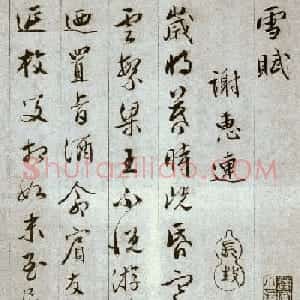 雪賦
謝惠連
歲將暮時既昏寒
雲繁梁王不悅游
迺置旨酒命賓友
延枚叟相如末至
Shufaziliao.com